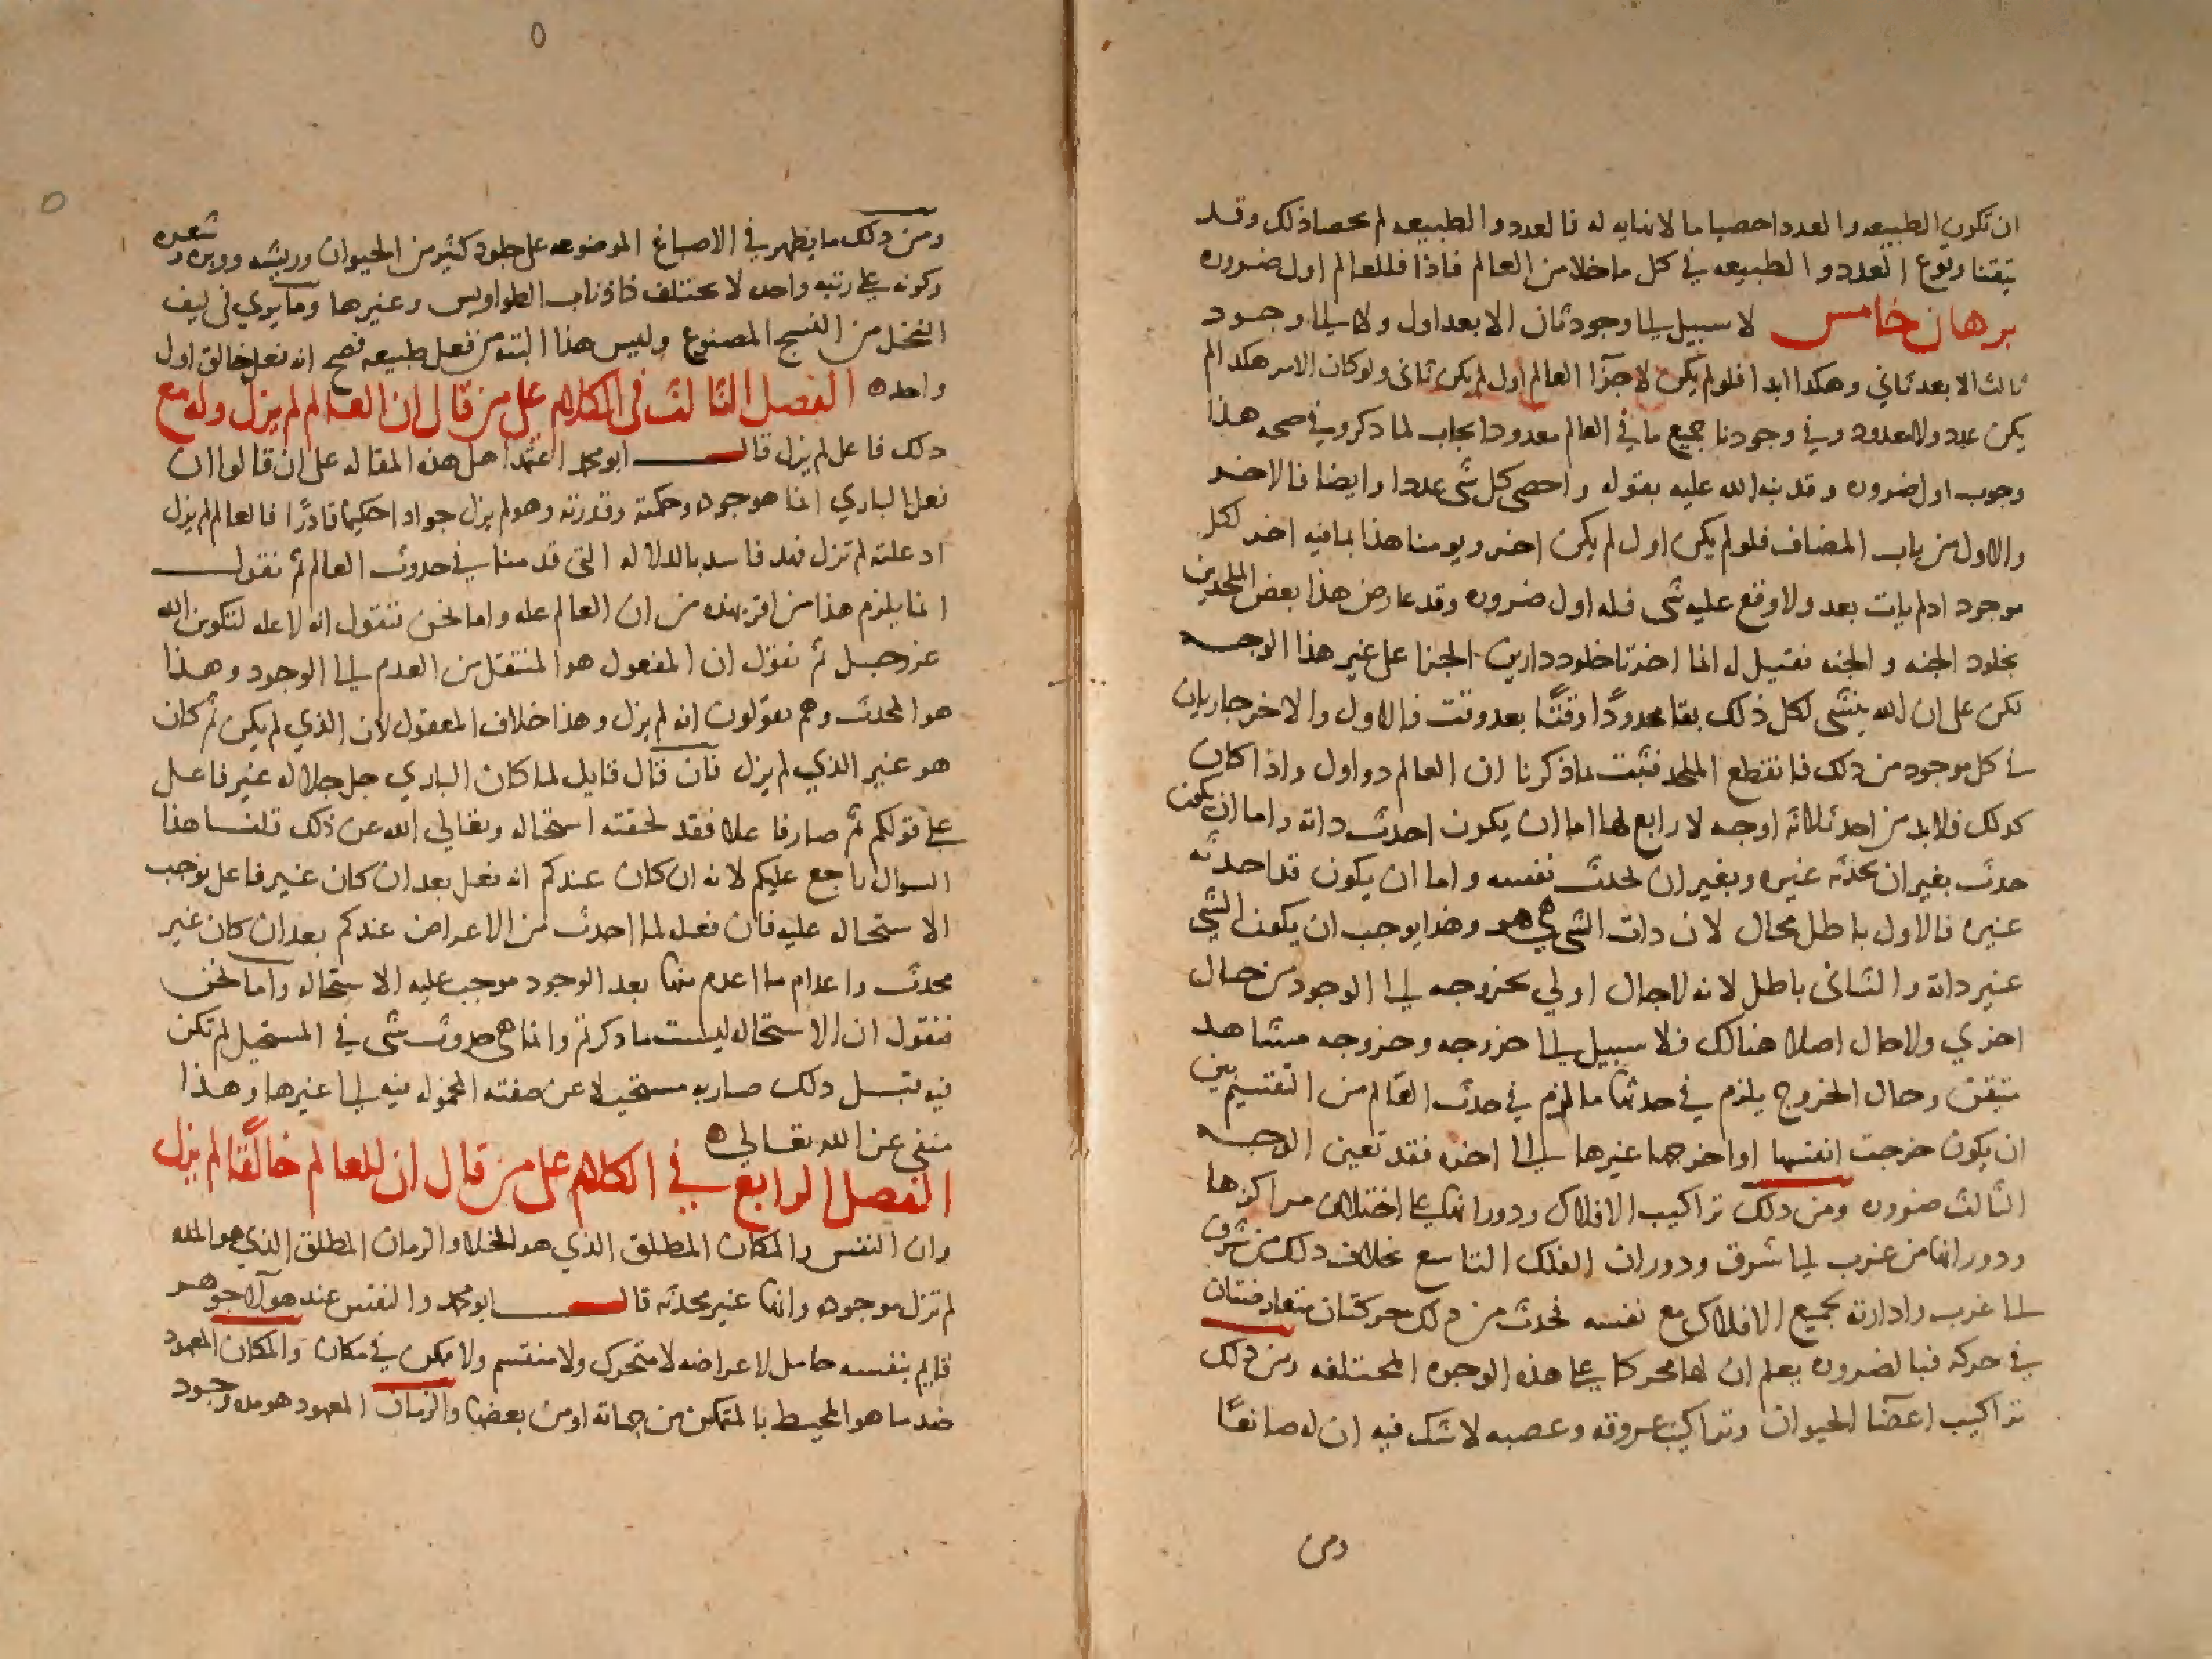 ان تكون الطبيعه والعدد احصيا ما لا نهايه له فالعدد والطبيعه لم يحصيا ذلك وقد
تيقنا وقوع العدد والطبيعه في كل ما خلا من العالم فاذا فللعالم اول ضروره
برهان خامس لا سبيل الى وجود ثان الا بعد اول ولا الى وجود
ثالث الا بعد ثاني وهكدا ابدا فلو لم يكن لاجزآ العالم اول لم يكن ثانى ولو كان الامر هكدا لم
يكن عدد ولا معدود وفي وجودنا جميع ما في العالم معدودا ايجاب لما دكر وفي صحه هذا
وجوب اول ضروره وقد نبه الله عليه بقوله واحصى كل شى عددا وايضا فالاخر
والاول من باب المضاف فلو لم يكن اول لم يكن اخر ويومنا هذا بما فيه اخر لكل
موجود ادلم يات بعد ولا وقع عليه شى فله اول ضروره وقد عارض هذا بعض الملحدين
بخلود الجنه و الجنه فقيل له انما اخرنا خلود دارين الجزا على غير هذا الوجه
لكن على ان الله ينشى لكل ذلك بقا محدودًا وقتًا بعد وقت فالاول والاخر جاريان
في كل موجود من دلك فانقطع الملحد فثبت بما ذكرنا ان العالم دو اول واذا كان
كدلك فلا بد من احد ثلاثه اوجه لا رابع لها اما ان يكون احدث داته واما ان يكون
حدث بغير ان يحدثه غيره وبغير ان يحدث نفسه واما ان يكون قد احدثه
غيره فالاول باطل محال لان دات الشي هي هو وهذا يوجب ان يكون الشي
غير داته والثانى باطل لانه لا حال اولي بخروجه الى الوجود من حال
اخري ولا حال اصلا هنالك فلا سبيل الى خروجه وخروجه مشاهد
متيقن وحال الخروج يلزم في حدثها ما لزم في حدث العالم من التقسيم بين
ان يكون خرجت انفسها او اخرجها غيرها الى اخره فقد تعين الوجه
الثالث ضروره ومن دلك تراكيب الافلاك ودورانها على اختلاف مراكزها
ودورانها من غرب الى شرق ودوران الفلك التاسع بخلاف دلك من شرق
الى غرب وادارته بجميع الافلاك مع نفسه فحدث من دلك حركتان متعارضتان
في حركه فبالضروره يعلم ان لها محركا على هذه الوجوه المختلفه ومن دلك
تراكيب اعضآ الحيوان وتراكيب عروقه وعصبه لا شك فيه ان له صانعًا
ومن
ومن دلك ما يظهر في الاصباغ الموضوعه على جلود كثير من الحيوان وريشه ووبره و شعره
وكونه على رتبه واحده لا يختلف كاذناب الطواويس وغيرها وما يوي في ليف
النخل من النسج المصنوع وليس هذا البته من فعل طبيعه فصح انه فعل خالق اول
واحد ه الفصل الثالث فى الكلام على من قال ان العالم لم يزل وله مع
دلك فاعل لم يزل قال ابو محمد اعتمد اهل هذه المقاله على ان قالوا ان
فعل الباري انما هو جوده وحكمته وقدرته وهو لم يزل جوادا حكيما قادرًا فالعالم لم يزل
اد علته لم تزل فهد فاسد بالدلاله التى قدمنا في حدوث العالم ثم نقول
انما يلزم هذا من اقر بهذه من ان العالم عله واما نحن فنقول انه لا عله لتكوين الله
عز وجل ثم نقول ان المفعول هو المنتقل من العدم الى الوجود وهذا
هو المحدث وهم يقولون انه لم يزل وهذا خلاف المعقول لان الذي لم يكن ثم كان
هو غير الذي لم يزل فان قال قايل لما كان الباري جل جلاله غير فاعل
على قولكم ثم صار فاعلا فقد لحقته استحاله وتعالي الله عن ذلك قلنا هذا
السوال راجع عليكم لانه ان كان عندكم انه فعل بعد ان كان غير فاعل يوجب
الاستحاله عليه فان فعله لما احدث من الاعراض عندكم بعد ان كان غير
محدث واعدام ما اعدم منها بعد الوجود موجب عليه الاستحاله واما نحن
فنقول ان الاستحاله ليست ما دكرتم وانما هي حدوث شى في المستحيل لم تكن
فيه قبل دلك صار به مستحيلا عن صفته المحموله فيه الى غيرها وهذا
منفي عن الله تعالي ه
الفصل الرابع في الكلام على من قال ان للعالم خالقًا لم يزل
وان النفس والمكان المطلق الذي هو الخلا والزمان المطلق الذي هو المده
لم تزل موجوده وانها غير محدثه قال ابو محمد والنفس عند هولآ جوهر
قايم بنفسه حامل لاعراضه لا متحرك ولا منقسم ولا ممكن في مكان والمكان المعهود
ضد ما هو المحيط بالمتمكن من جهاته او من بعضها والزمان المعهود هو مده وجود